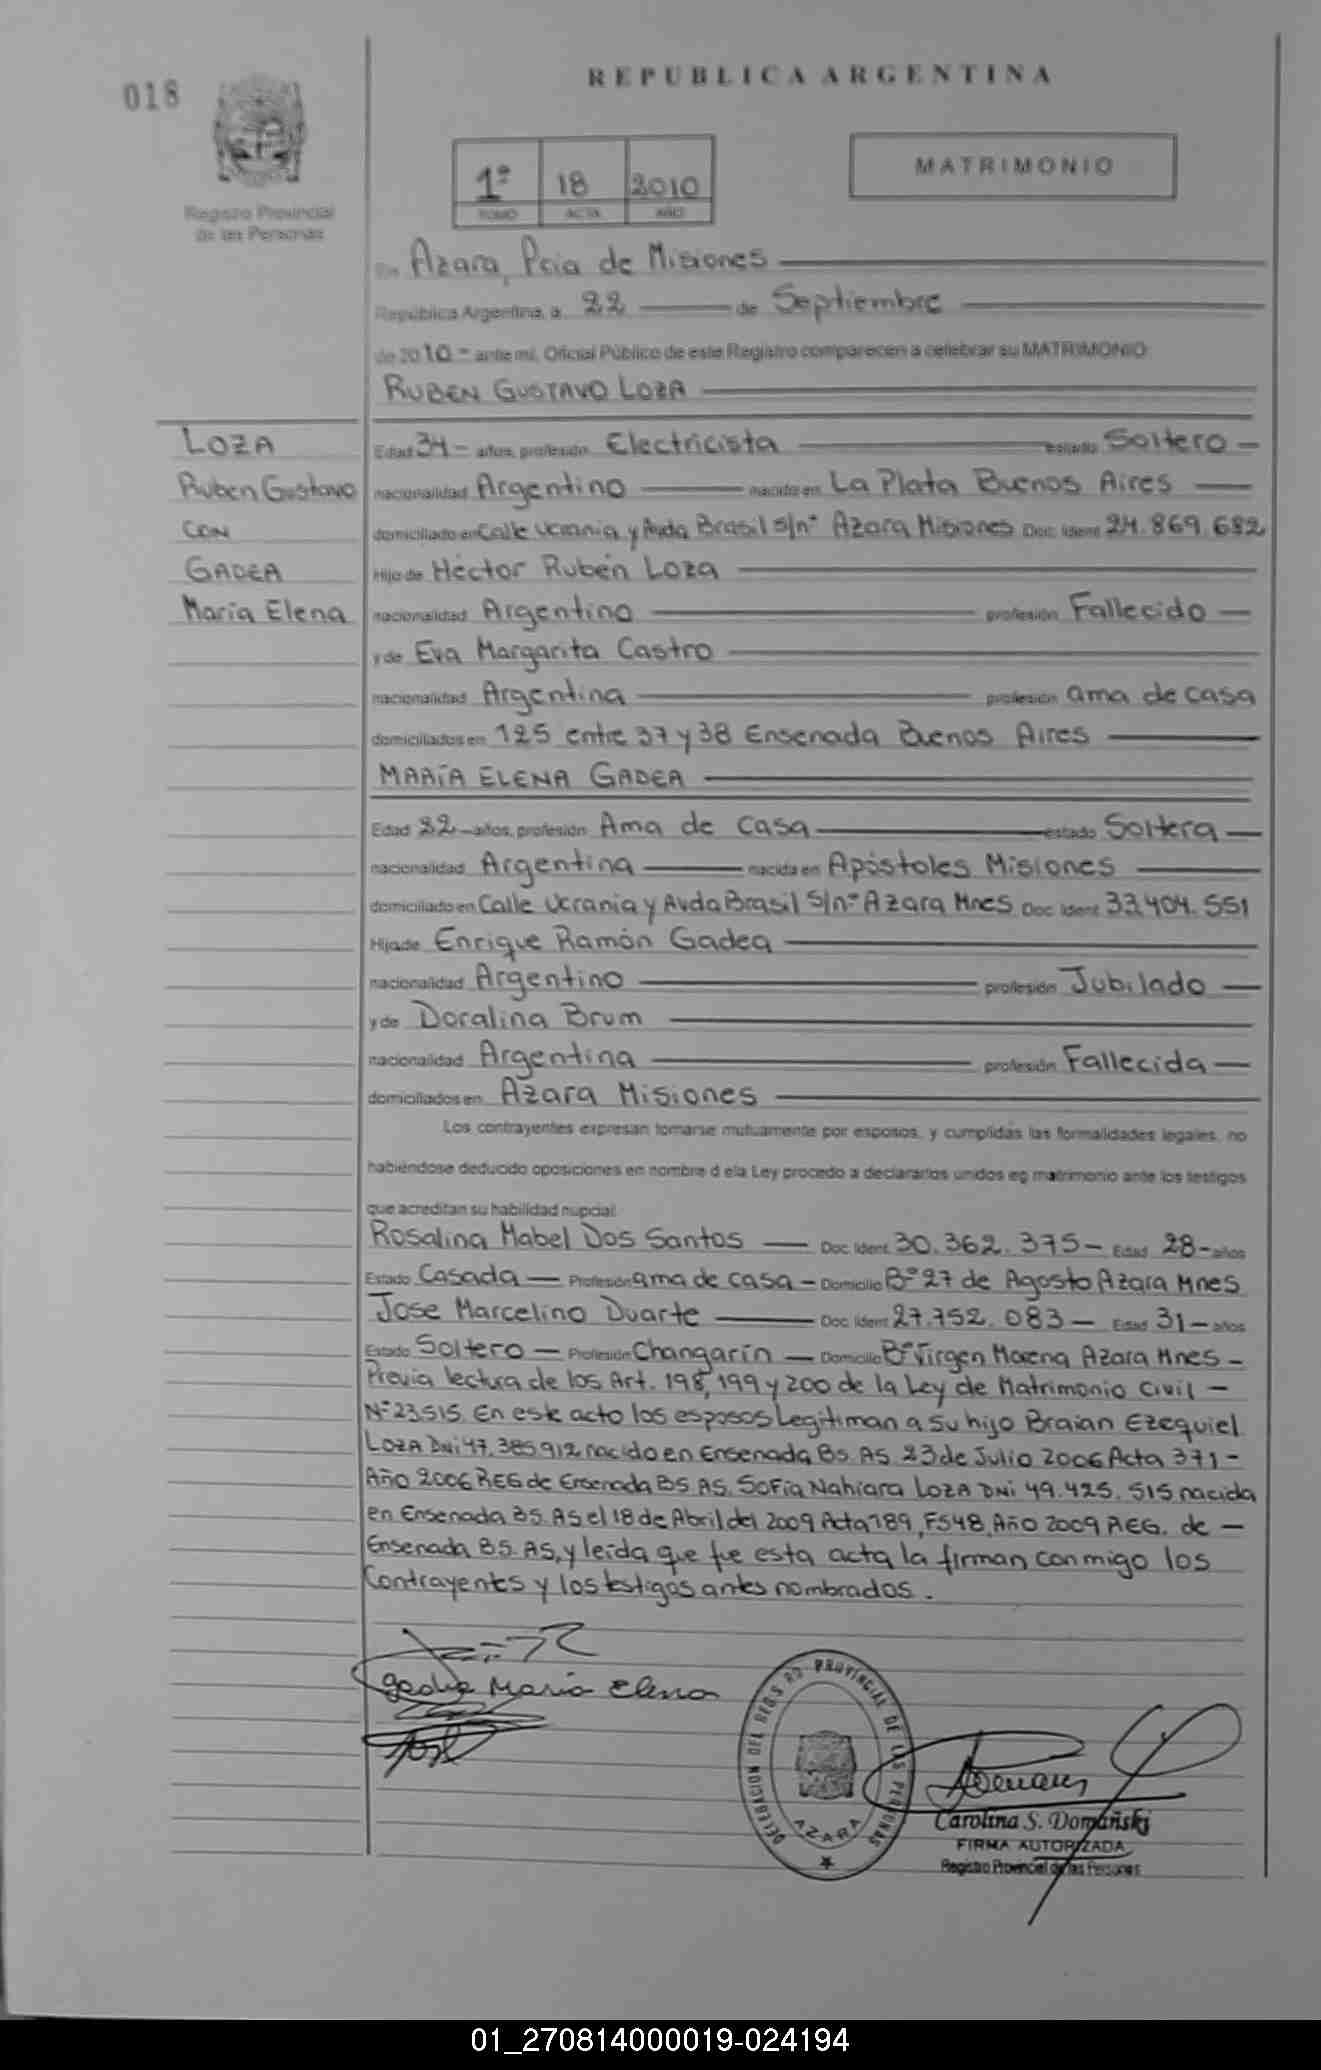 018
REPUBLICA ARGENTINA
MATRIMONIO
1º 18 2010
TOMO ACTA AÑO
Registro Provincial
de las Personas
En Azara, Pcia de Misiones
República Argentina, a 22 de Septiembre
de 2010 - ante mí, Oficial Público de este Registro comparecen a celebrar su MATRIMONIO:
RUBEN GUSTAVO LOZA
LOZA
Ruben Gustavo
CON
GADEA
María Elena
Edad 34 - años, profesión Electricista estado Soltero -
nacionalidad Argentino nacido en La Plata Buenos Aires
domiciliado en Calle Ucrania y Avda Brasil s/nº Azara Misiones Doc. Ident. 24.869.682
Hijo de Héctor Rubén Loza
nacionalidad Argentino profesión Fallecido
y de Eva Margarita Castro
nacionalidad Argentina profesión ama de casa
domiciliados en 125 entre 37 y 38 Ensenada Buenos Aires
MARÍA ELENA GADEA
Edad 22 - años, profesión Ama de Casa estado Soltera
nacionalidad Argentina nacida en Apóstoles Misiones
domiciliado en Calle Ucrania y Avda Brasil S/nº Azara Mnes Doc. Ident. 33.404.551
Hija de Enrique Ramón Gadea
nacionalidad Argentino profesión Jubilado
y de Doralina Brum
nacionalidad Argentina profesión Fallecida
domiciliados en Azara Misiones
Los contrayentes expresan tomarse mutuamente por esposos, y cumplidas las formalidades legales, no
habiéndose deducido oposiciones en nombre d ela Ley procedo a declararlos unidos eg matrimonio ante los testigos
que acreditan su habilidad nupcial:
Rosalina Mabel Dos Santos Doc. Ident. 30.362.375 - Edad 28 - años
Estado Casada Profesión ama de casa - Domicilio Bº 27 de Agosto Azara Mnes
Jose Marcelino Duarte Doc. Ident. 27.752.083 - Edad 31 - años
Estado Soltero - Profesión Changarín - Domicilio Bº Virgen Morena Azara Mnes -
Previa lectura de los Art. 198, 199 y 200 de la Ley de Matrimonio Civil -
Nº 23515. En este acto los esposos Legitiman a su hijo Braian Ezequiel
LOZA DNI 47.385912 nacido en Ensenada Bs. As. 23 de Julio 2006 Acta 371 -
Año 2006 REG de Ensenada BS. AS. Sofía Nahiara LOZA DNI 49.425.515 nacida
en Ensenada BS. AS el 18 de Abril del 2009 Acta 189, F548, Año 2009 REG. de -
Ensenada BS. AS, y leída que fue esta acta la firman conmigo los
Contrayentes y los testigos antes nombrados.
Gadea María Elena
DELEGACION DEL REGISTRO PROVINCIAL DE LAS PERSONAS
AZARA
Carolina S. Domañski
FIRMA AUTORIZADA
Registro Provincial de las Personas
01_270814000019-024194